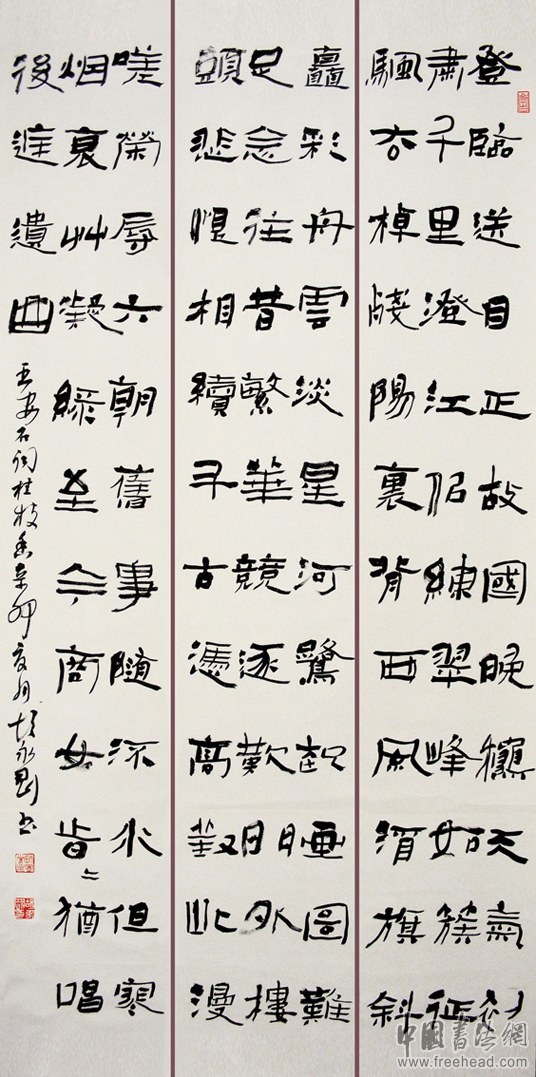 登臨送目正故國晚龝天氣初
肅千里澄江佀練翠峰如簇征
颿去棹殘陽裏背西風酒旗斜
矗彩舟雲淡星河鷺起畫圖難
足念往昔繁華競逐歎門外樓
頭悲恨相續千古憑高對此漫
嗟榮辱六朝舊事隨流水但寒
烟衰艸凝綠至今商女旹〻猶唱
後庭遺曲
王安石詞桂枝香辛卯夏月胡永剛書
中國書法網
www.freehead.com